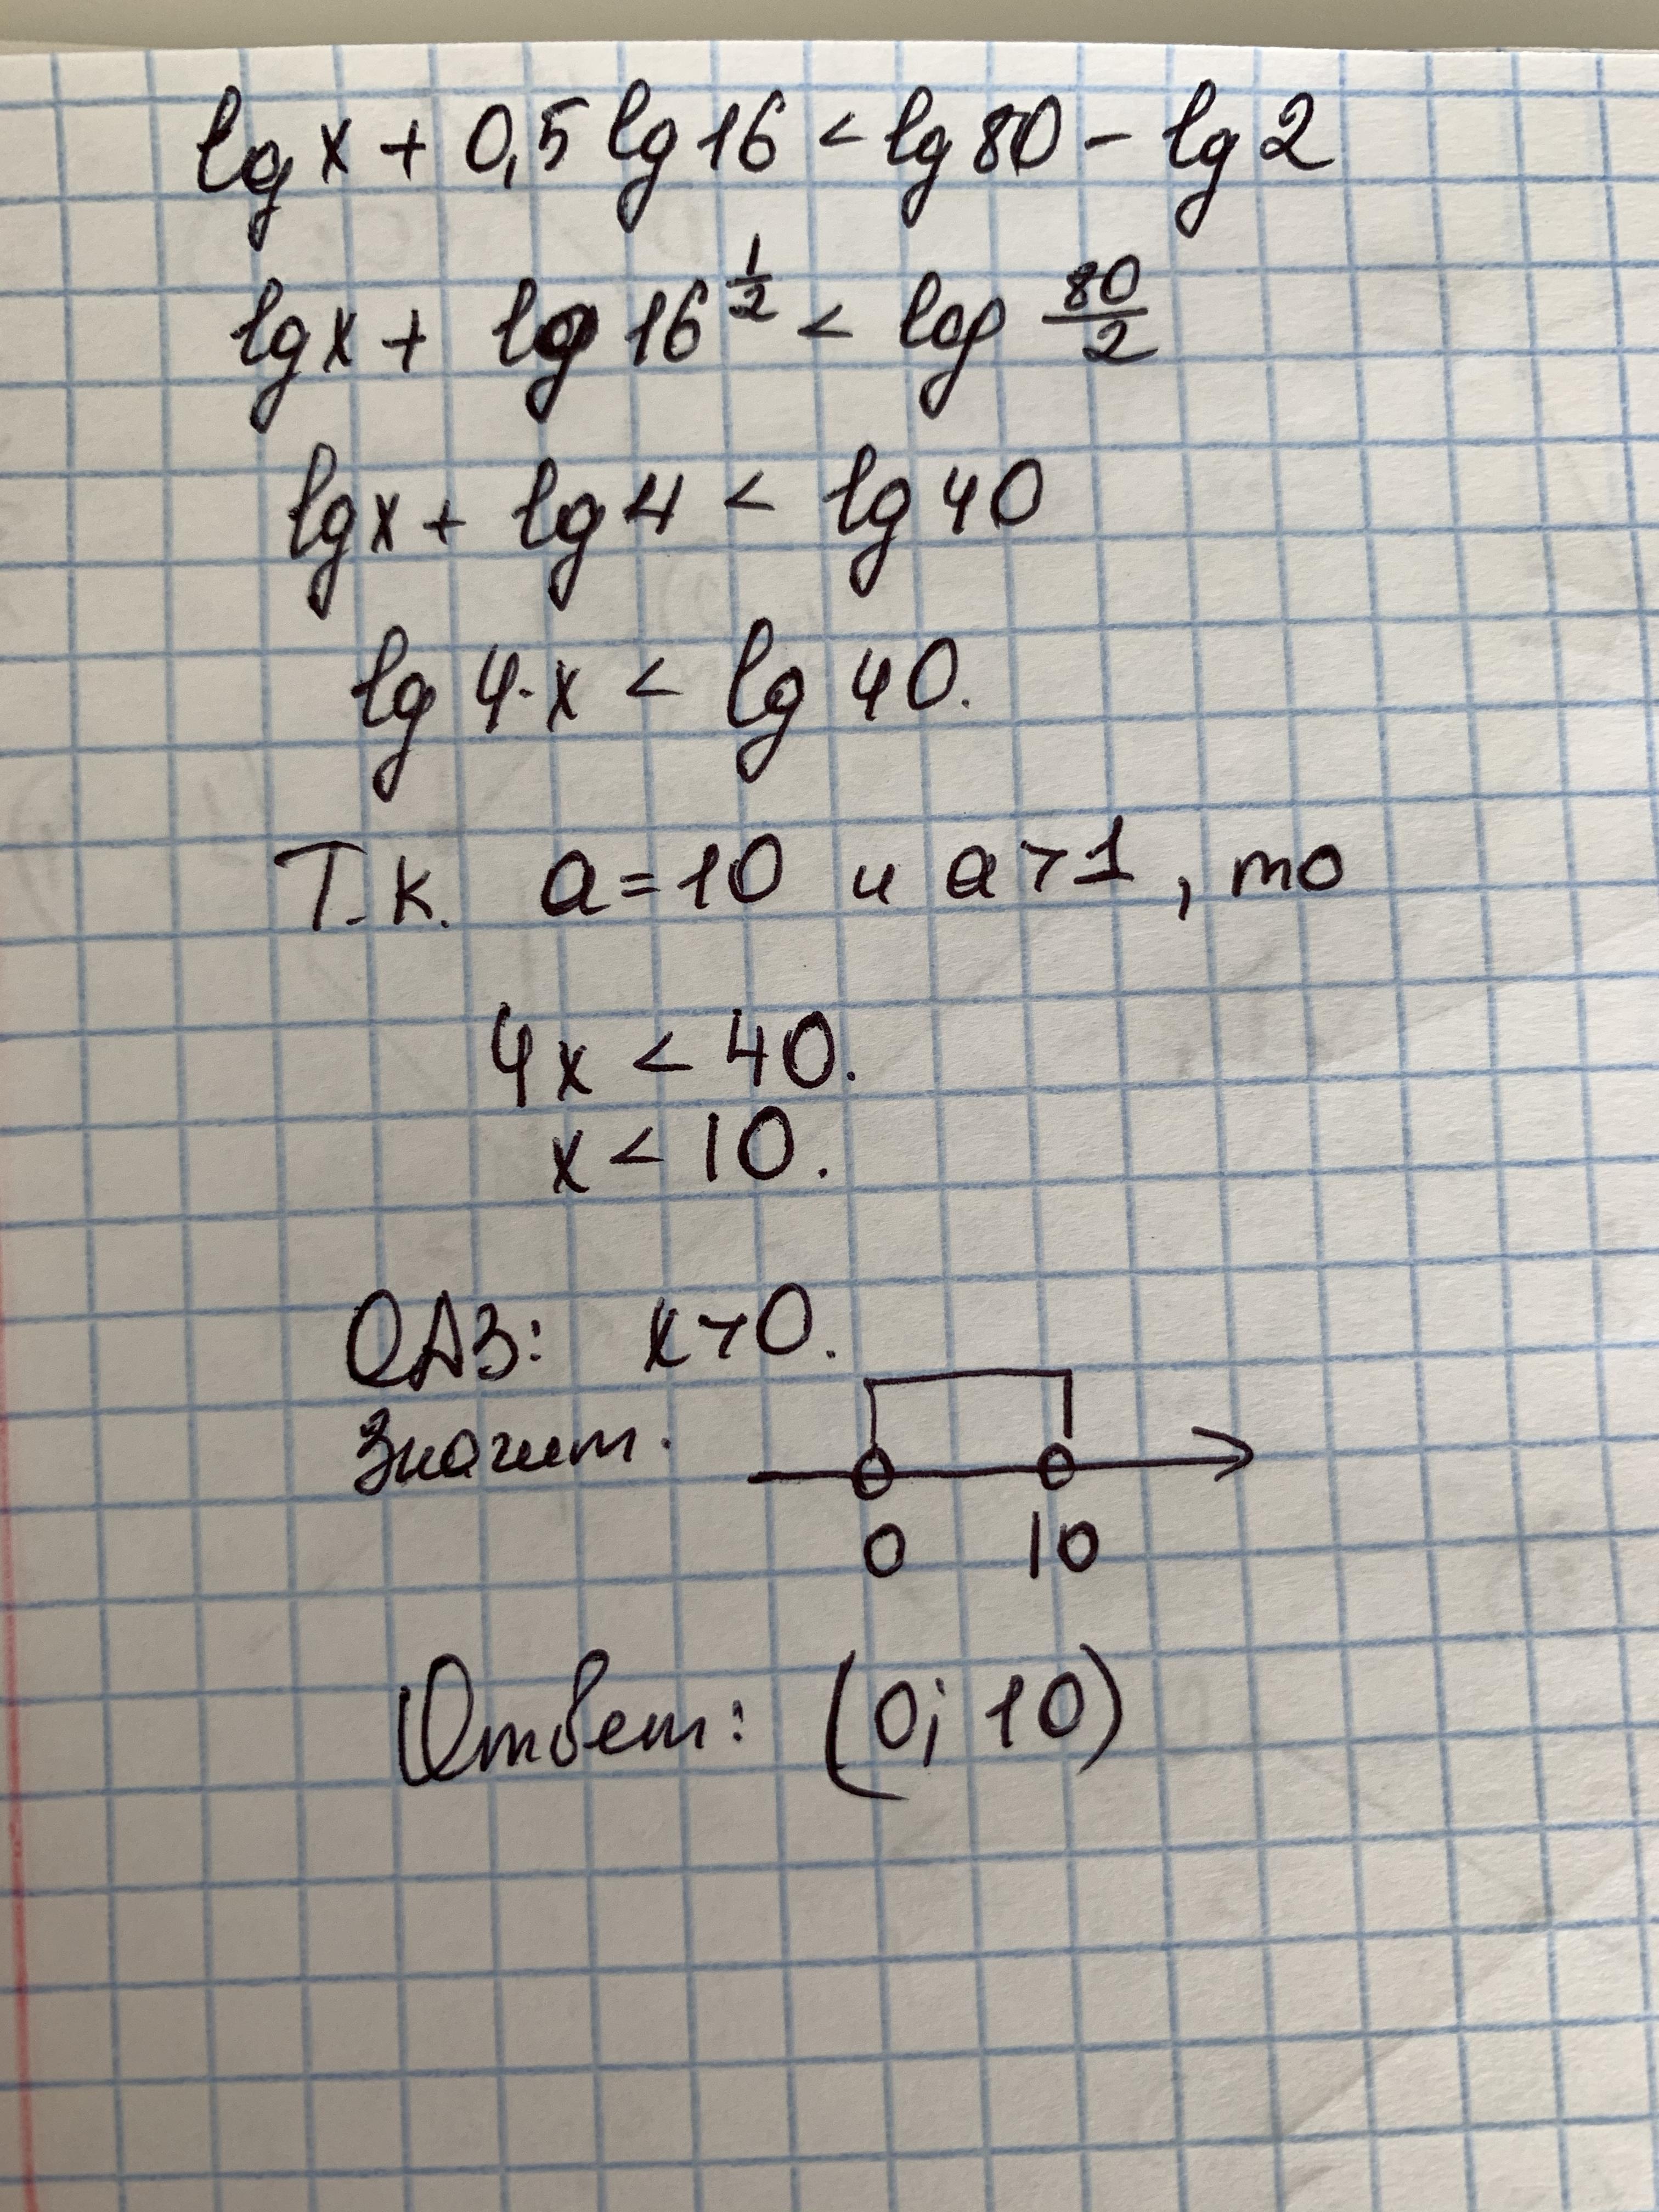 lg x + 0,5 lg 16 < lg 80 - lg 2
lg x + lg 16^(1/2) < lg 80/2
lg x + lg 4 < lg 40
lg 4·x < lg 40.
Т.к. a=10 и a>1, то
4x < 40.
x < 10.
ОДЗ: x>0.
Значит.
0 10
Ответ: (0; 10)